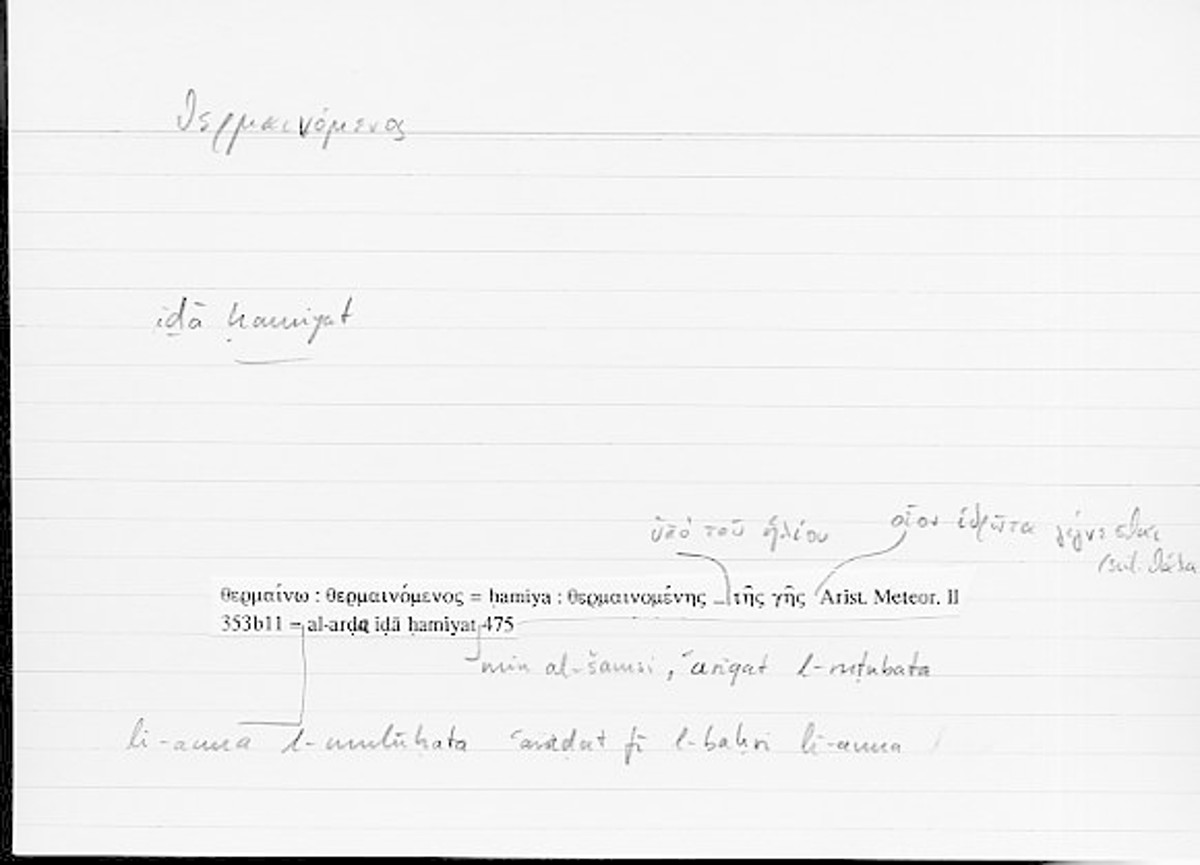 θερμαινόμενος
iḏā ḥamiyat
ὑπὸ τοῦ ἡλίου
οἷον ἱδρῶτα γίγνεσθαι
θερμαίνω : θερμαινόμενος = ḥamiya : θερμαινομένης _ τῆς γῆς Arist. Meteor. II
353b11 = al-arḍa iḏā ḥamiyat 475
min al-šamsi, ʿariqat l-ruṭubata
li-anna l-mulūḥata ʿaraḍat fī l-baḥri li-anna